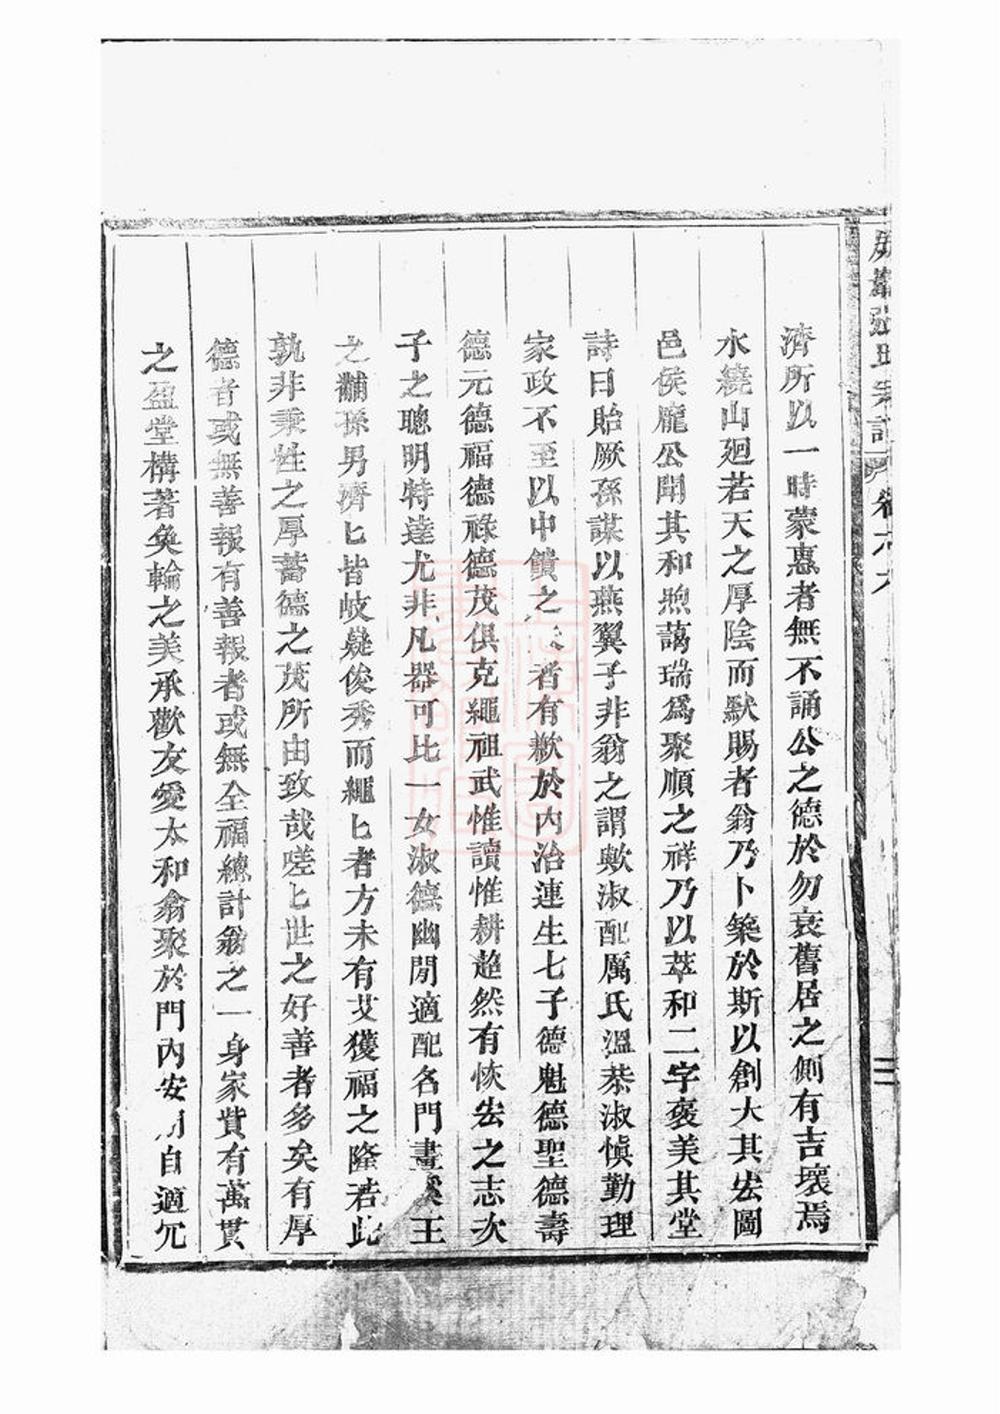 濟所以一時蒙惠者無不誦公之德於勿衰舊居之側有吉壤焉
水繞山廻若天之厚陰而默賜者翁乃卜築於斯以創大其宏圖
邑侯龐公聞其和煦藹瑞爲聚順之祥乃以萃和二字褒美其堂
詩曰貽厥孫謀以燕翼子非翁之謂歟淑配厲氏溫恭淑慎勤理
家政不至以中饋之者有歉於內治連生七子德魁德聖德壽
德元德福德祿德茂俱克繩祖武惟讀惟耕趨然有恢宏之志次
子之聰明特達尤非凡器可比一女淑德幽閒適配名門畫溪王
之黼孫男濟匕皆岐嶷俊秀而繩匕者方未有艾獲福之隆若此
孰非秉性之厚蓄德之茂所由致哉嗟匕世之好善者多矣有厚
德者或無善報有善報者或無全福總計翁之一身家貲有萬貫
之盈堂構著奐輪之美承歡友愛太和翕聚於門內安自適冗